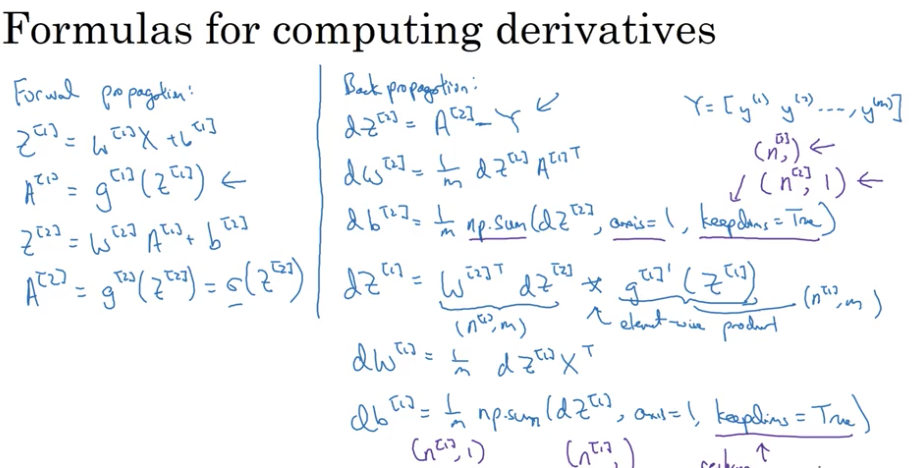 Formulas for computing derivatives
Forwal propagation:
Z^[1] = W^[1] X + b^[1]
A^[1] = g^[1](Z^[1]) ←
Z^[2] = W^[2] A^[1] + b^[2]
A^[2] = g^[2](Z^[2]) = σ(Z^[2])
Back propagation:
dZ^[2] = A^[2] - Y
dW^[2] = 1/m dZ^[2] A^[1]T
db^[2] = 1/m np.sum(dZ^[2], axis=1, keepdims=True)
dZ^[1] = W^[2]T dZ^[2] * g^[1]'(Z^[1])
(n^[1], m)
element-wise product
(n^[1], m)
dW^[1] = 1/m dZ^[1] X^T
db^[1] = 1/m np.sum(dZ^[1], axis=1, keepdims=True)
(n^[1], 1)
(n^[1], )
Y = [y^(1) y^(2) ..., y^(m)]
(n^[2], ) ←
(n^[2], 1) ←